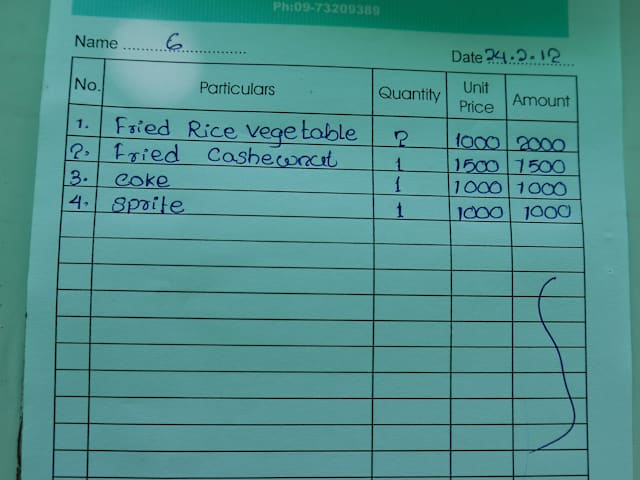 Ph:09-73209389
Name 6
Date 24.2.12
No. Particulars Quantity Unit Price Amount
1. Fried Rice vegetable 2 1000 2000
2. Fried Cashewnut 1 1500 1500
3. coke 1 1000 1000
4. sprite 1 1000 1000